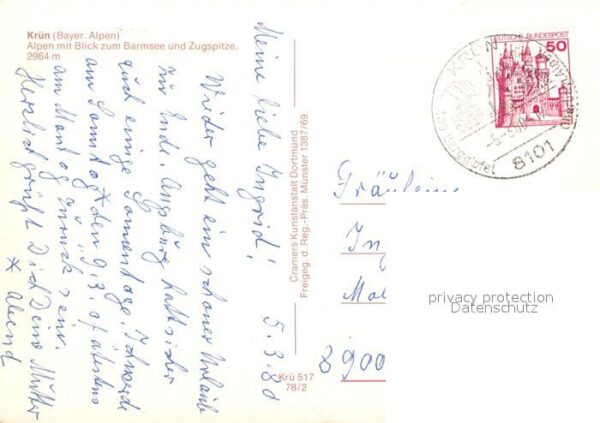 Krün (Bayer. Alpen)
Alpen mit Blick zum Barmsee und Zugspitze,
2964 m
Meine liebe Ingrid!
5.3.80
Wieder geht ein schöner Urlaub
zur Ende. Augsburg hatte
auch einige Sonnentage. Ich werde
am Samstag * den 9.3. spätestens
am Montag zurück sein.
Herzlich grüßt Dich Deine Mutter
* Abend
Cramers Kunstanstalt Dortmund
Freigeg. d. Reg.-Präs. Münster 1387/69
Krü 517
78/2
DEUTSCHE BUNDESPOST
50
KRÜN
8101
Fräulein
In
8900
privacy protection
Datenschutz